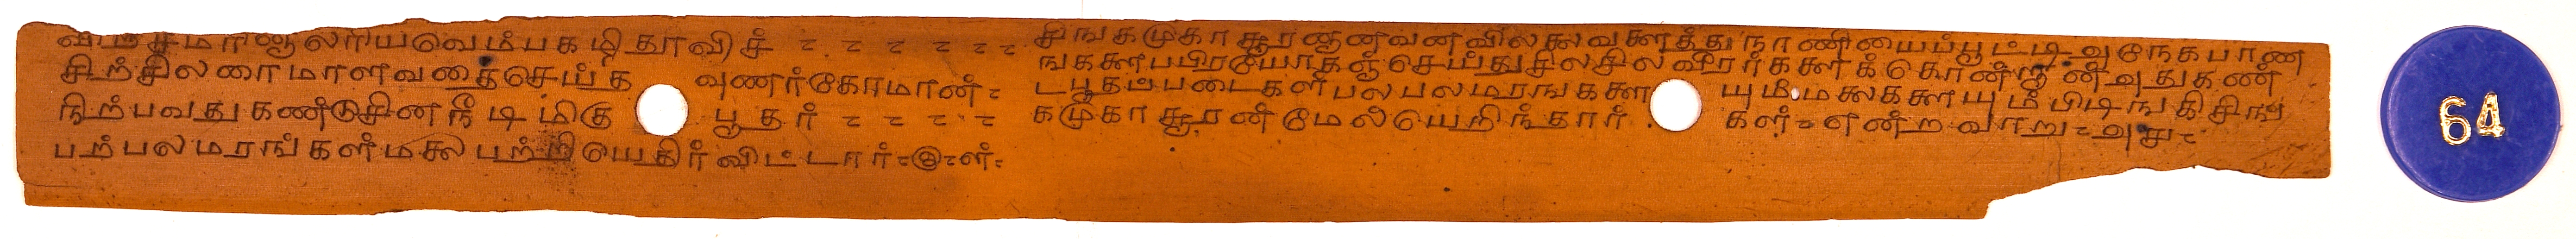 விற்சமரினாலரியவெம்பகழிதூவிச் - - - - - -
சிற்சிலரைமாளவதைசெய்த வுணர்கோமான்-
நிற்பவதுகண்டுசினநீடிமிகு பூதர் - - - -
பற்பலமரங்கள்மலைபற்றியெதிர்விட்டார்-
சிங்கமுகாசூரனானவனவிலலைவளைத்துநாணியைப்பூட்டிஅநேகபாண
ங்களைபபிரயோகஞ்செய்துசிலசிலவீரர்களைக்கொன்றான்அதுகண்
டபூதப்படைகளிபலபலமரங்களை யும்மலைகளையும்பிடிங்கிசிங்
கமுகாசூரன்மேல்யெறிந்தார் கள்-என்றவாறு-அது-
64